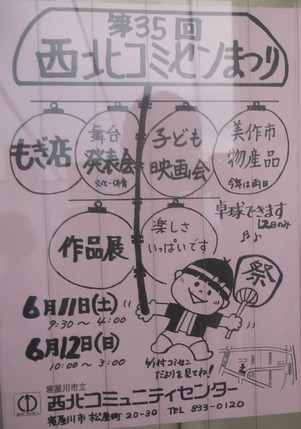 第35回
西北コミセンまつり
もぎ店
舞台
発表会
文化・体育
子ども
映画会
美作市
物産品
今年は両日
作品展
楽しさ
いっぱいです
卓球できます
12日のみ
祭
6月11日(土)
9:30～4:00
6月12日(日)
10:00～3:00
コミセン
だよりを見てね!
ココ
寝屋川市立
西北コミュニティセンター
寝屋川市松屋町20-30 TEL 833-0120